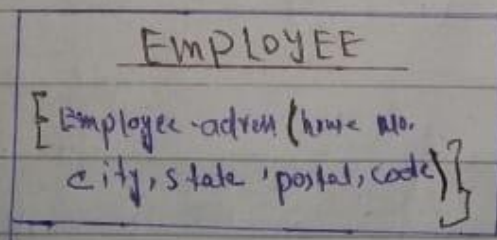 EMPLOYEE
[Employee-adress (house No.
city, state, postal, code)}